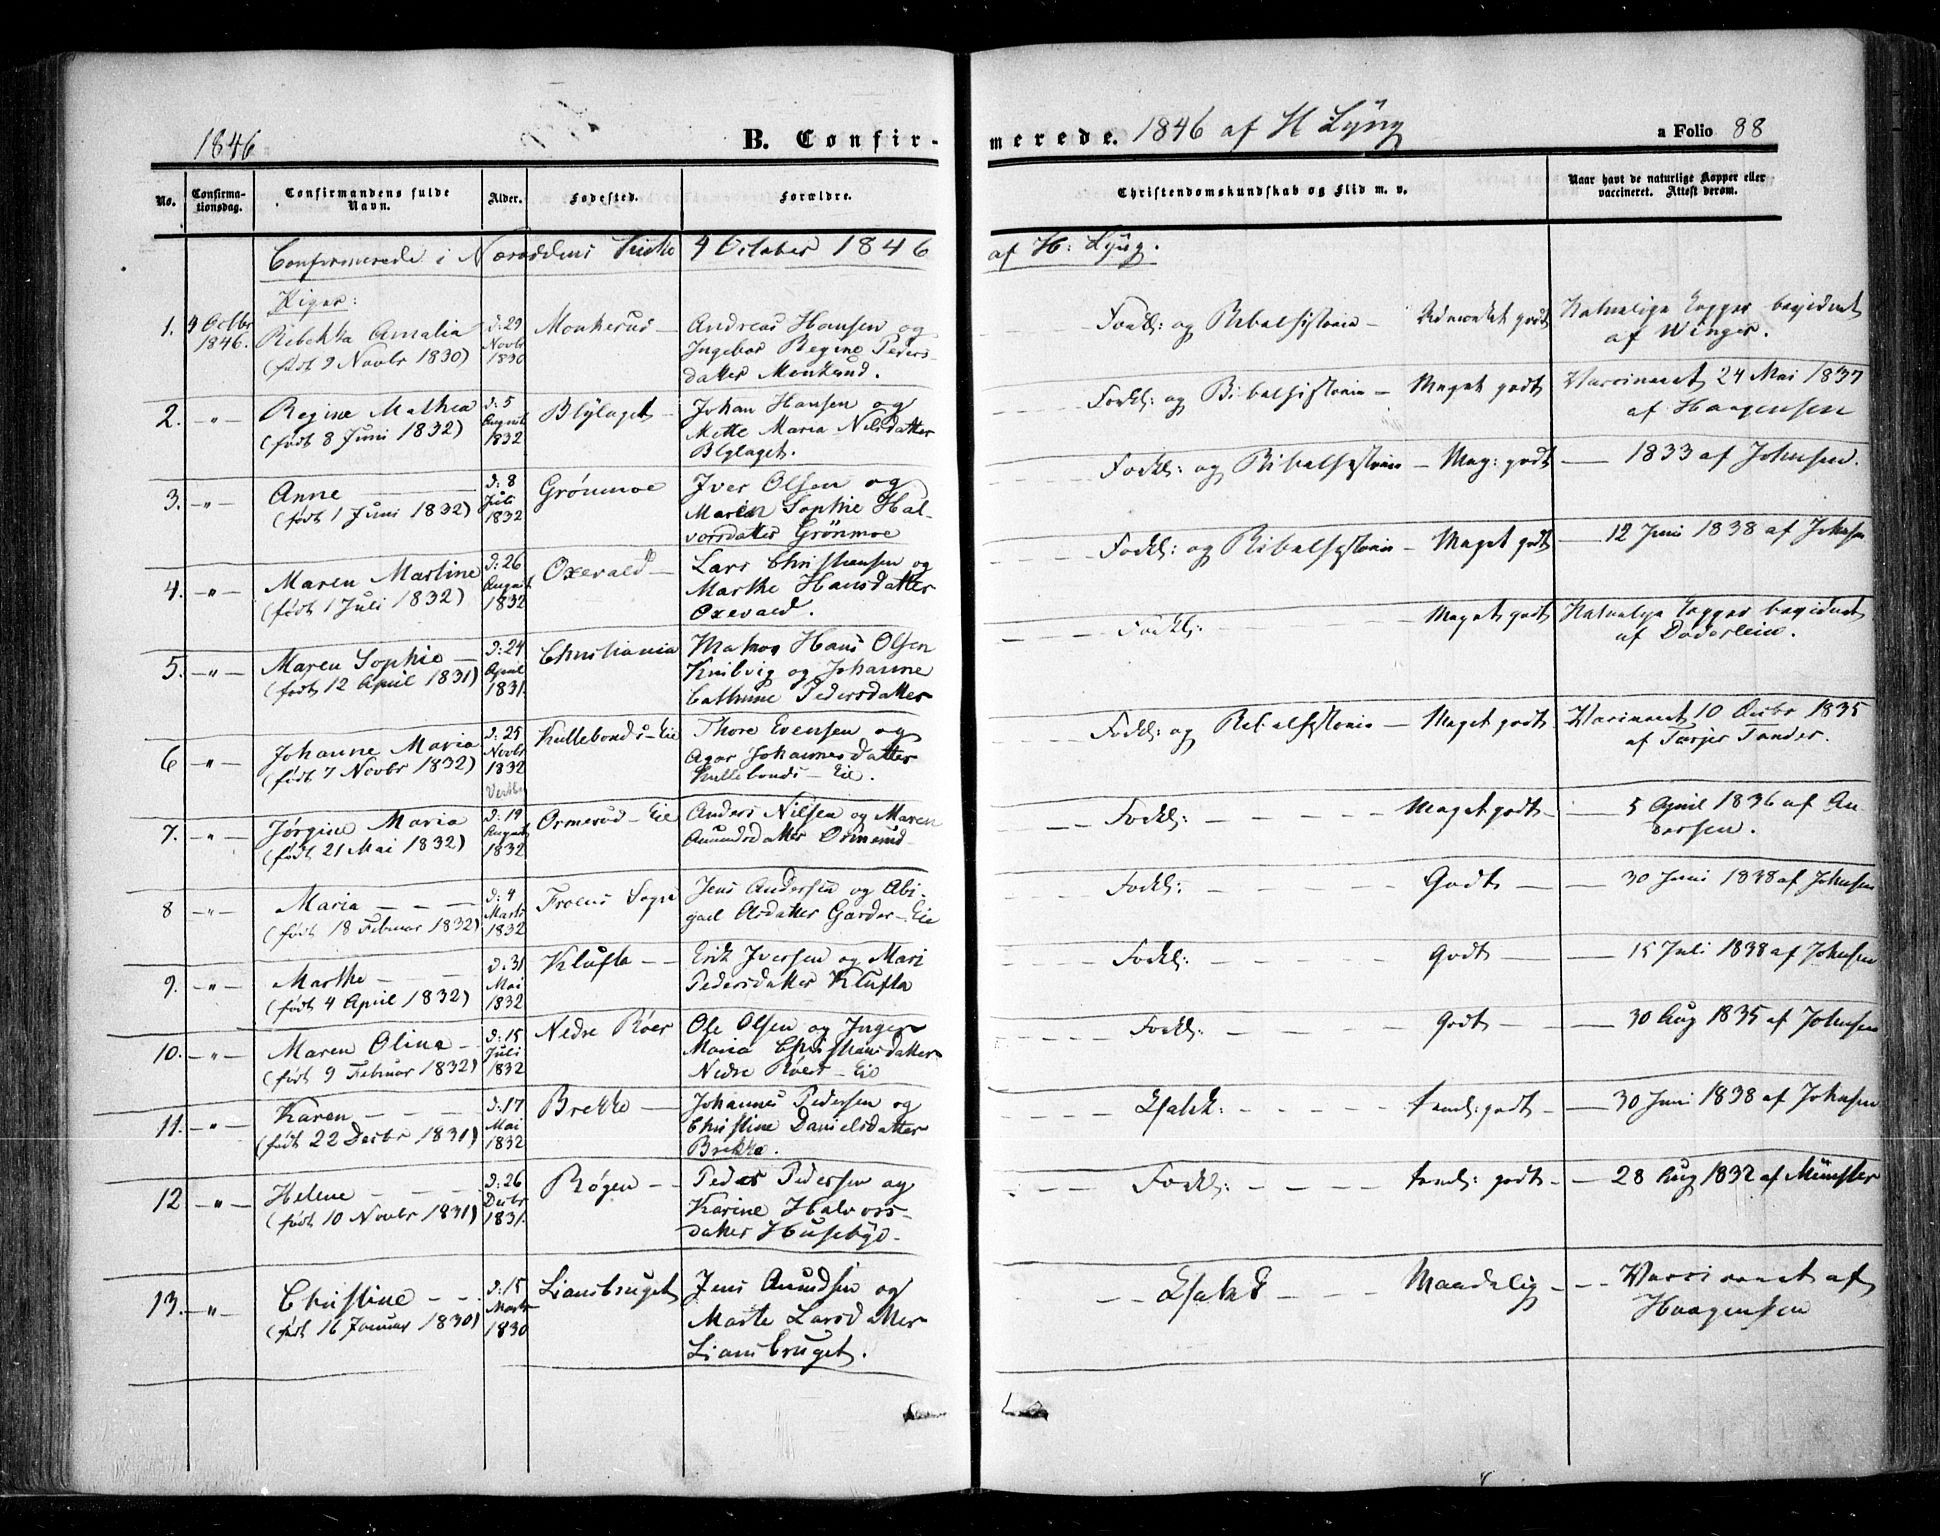 1846
B. Confirmerede. 1846 af H Lÿng
a Folio 88
No. Confirmationsdag. Confirmandens fulde Navn. Alder. Fødested. Forældre. Christendomskundskab og Flid m. v. Naar havt de naturlige Kopper eller vaccineret. Attest derom.
Confirmerede i Næsoddens Kirke 4 October 1846 af H: Lÿng.
Piger:
1. 4 Octbr 1846. Rebekka Amalia (født 9 Novbr 1830) d: 29 Novbr 1830 Monkerud — Andreas Hansen og Ingebor Regine Pedersdatter Monkerud. Forkl: og Bibelhistorie — Udmærket godt Naturlige Kopper begidnet af Winger.
2. — " — Regine Mathea (født 8 Juni 1832) d: 5 August 1832 Blÿlaget — Johan Hansen og Mette Maria Nilsdatter Blÿlaget. Forkl: og Bibelhistorie — Meget godt Vaccineret 24 Mai 1837 af Haagensen
3. — " — Anne (født 1 Juni 1832) d: 8 Juli 1832 Grönmoe Iver Olsen og Maren Sophie Halvorsdatter Grönmoe Forkl: og Bibelhistorie — Meg: godt — 1833 af Johnsen.
4. — " — Maren Martine (født 1 Juli 1832) d: 26 August 1832 Oxevald — Lars Christiansen og Marthe Hansdatter Oxevald. Forkl: og Bibelhistorie — Meget godt — 12 Juni 1838 af Johnsen
5. — " — Maren Sophie — (født 12 April 1831) d: 24 April 1831. Christiania Hans Olsen og Johanne Cathrine Pedersdatter Forkl: Meget godt Naturlige Kopper begidnet af Döderlein.
6 — " — Johanne Maria (født 7 Novbr 1832) d: 25 Novbr 1832 — Eie Thore Evensen og Johannesdatter — Eie. Forkl: og Bibelhistorie — Meget godt Vaccineret 10 1835 af Torjer Tander.
7. — " — Jørgine Maria (født 21 Mai 1832) d: 19 August 1832 Ormerud — Eie Anders Nilsen og Maren Amundsdatter Ormerud — Forkl: Meget godt — 5 April 1836 af Andersen.
8 — " — Maria — — — (født 18 Februar 1832) d: 4 Marts 1832 Froens Sogn Jens Andersen og Abigael Olsdatter Garder — Eie Forkl: Godt — 30 Juni 1838 af Johnsen
9. — " — Marthe — (født 4 April 1832) d: 31 Mai 1832 Klufta — Erik Iversen og Mari Pedersdatter Klufta Forkl: Godt — 15 Juli 1838 af Johnsen
10. — " — Maren Oline — (født 9 Februar 1832) d: 15 Juli 1832 Nedre Röer Ole Olsen og Inger Maria Christiansdatter Nedre Röer — Eie Forkl: Godt — 30 Aug 1835 af Johnsen
11. — " — Karen — — — (født 22 Decbr 1831) d: 17 Mai 1832 Brekke — Johannes Pedersen og Christine Danielsdatter Brekke. temel: godt — 30 Juni 1838 af Johnsen
12 — " — Helene — — — (født 10 Novbr 1831) d: 26 Decbr 1831. Røgen — Peder Pedersen og Karine Halvorsdatter Husebye — Forkl: temel: godt — 28 Aug 1832 af Münster
13. — " — Christine — (født 16 Januar 1830) d: 15 Marts 1830 Liansbruget Jens Amundsen og Marte Larsdatter Liansbruget. Maadelig — Vaccineret af Haagensen